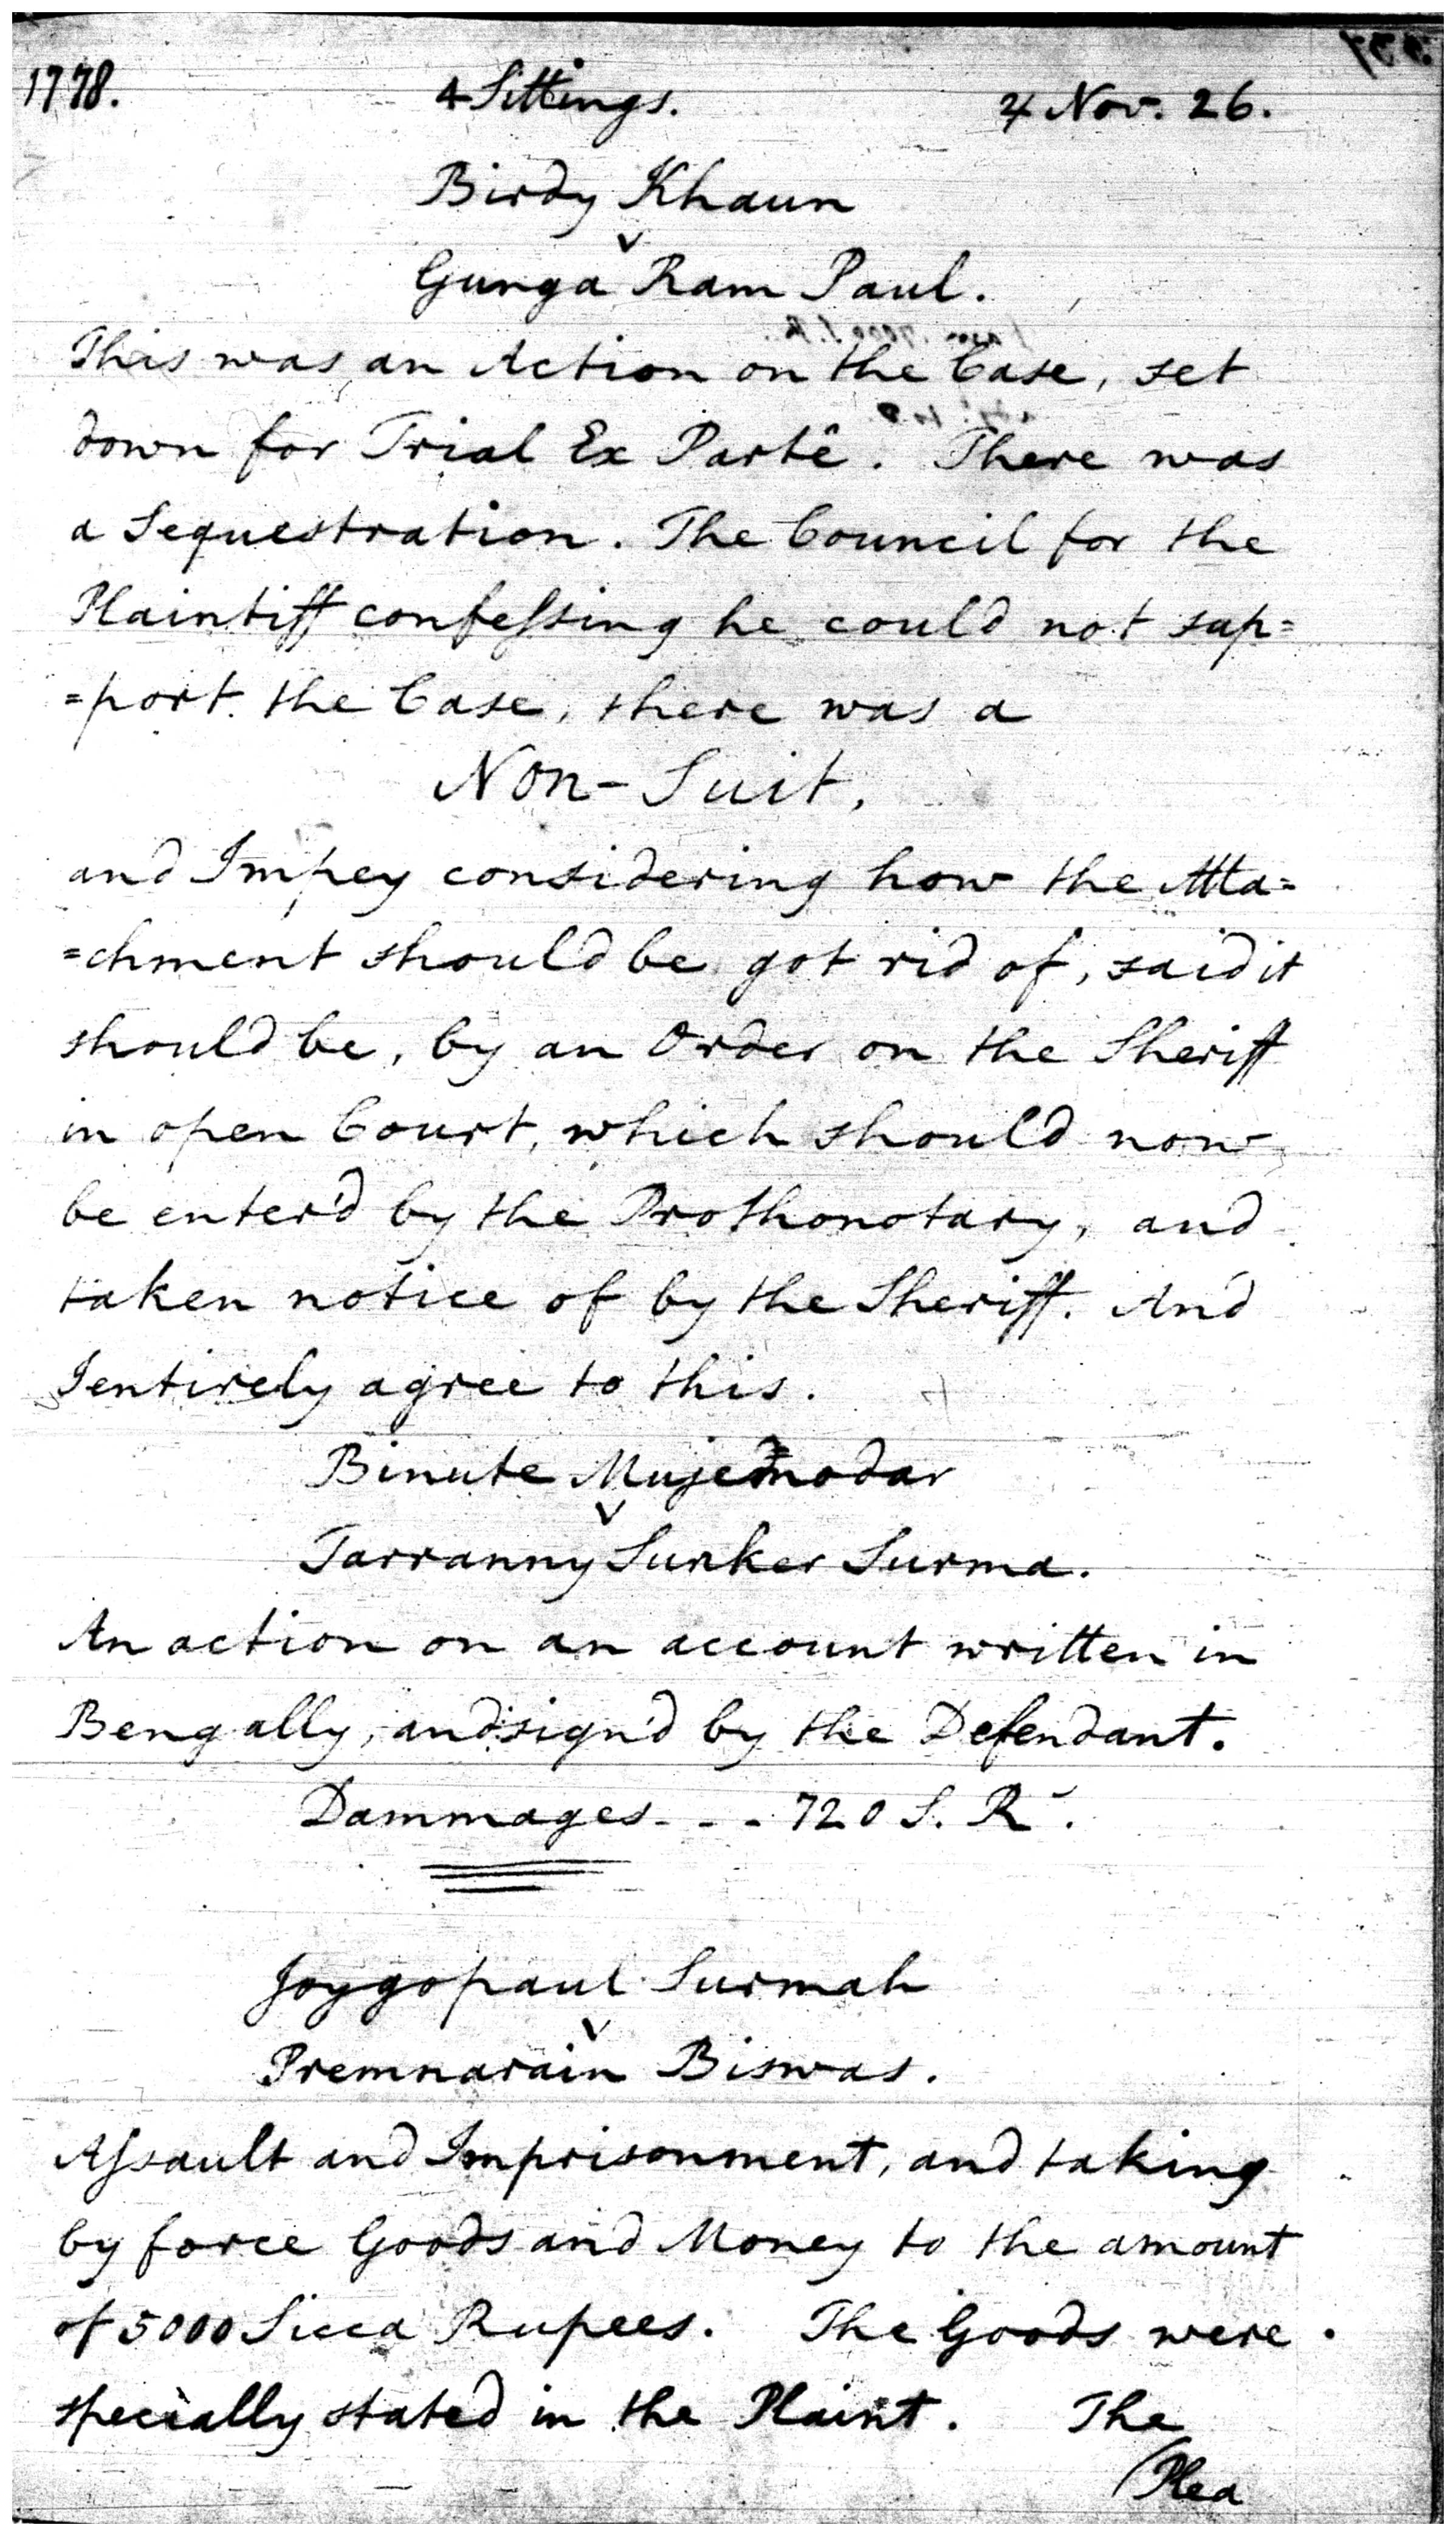 1778. 4 Sittings. ♃ Nov. 26.
Birdy Khaun
v
Gunga Ram Paul.
This was an Action on the Case, set
down for Trial Ex Partê. There was
a Sequestration. The Council for the
Plaintiff confeſsing he could not sup=
=port the Case, there was a
Non-Suit,
and Impey considering how the Atta=
=chment should be got rid of, said it
should be, by an Order on the Sheriff
in open Court, which should now
be enter'd by the Prothonotary, and
taken notice of by the Sheriff. And
I entirely agree to this.
Binute Mujemodar
v
Tarranny Sunker Surma.
An action on an account written in
Bengally, and sign'd by the Defendant.
Dammages - - - 720 S. R.
Joygopaul Surmah
v
Premnarain Biswas.
Aſsault and Imprisonment, and taking
by force Goods and Money to the amount
of 5000 Sicca Rupees. The Goods were
specially stated in the Plaint. The
Plea